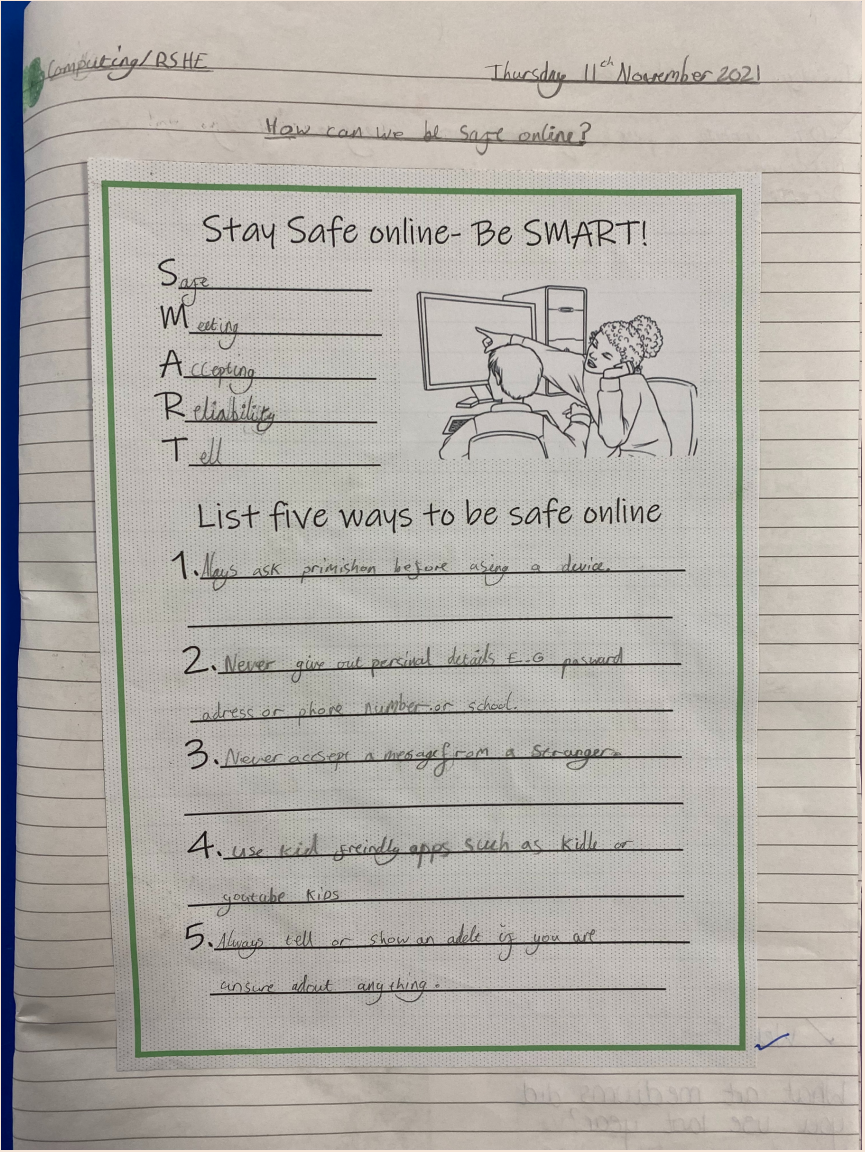 Computing/RSHE
Thursday 11th November 2021
How can we be safe online?
Stay Safe online- Be SMART!
Safe
Meeting
Accepting
Reliability
Tell
List five ways to be safe online
1. Alays ask primishon before using a device.
2. Never give out persinal details E.G passward
adress or phone number.or school.
3. Never accsept a message from a stranger.
4. use kid freindly apps such as kidle or
youtube kids
5. Always tell or show an adelt if you are
unsure about anything.
What art mediums did
you use last year?